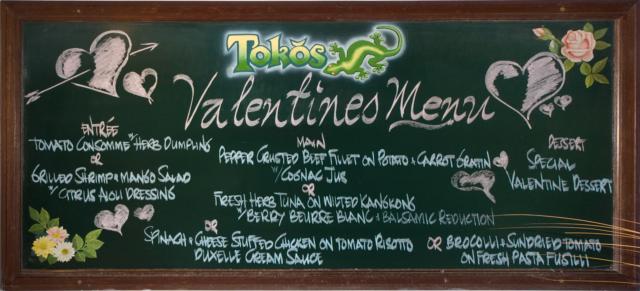 Tokŏs
Valentines Menu
ENTRÉE
TOMATO CONSOMME W/ HERB DUMPLING
OR
GRILLED SHRIMP & MANGO SALAD
W/ CITRUS AIOLI DRESSING
MAIN
PEPPER CRUSTED BEEF FILLET ON POTATO & CARROT GRATIN
W/ COGNAC JUS
OR
FRESH HERB TUNA ON WILTED KANGKONG
W/ BERRY BEURRE BLANC & BALSAMIC REDUCTION
OR
SPINACH & CHEESE STUFFED CHICKEN ON TOMATO RISOTTO
DUXELLE CREAM SAUCE
OR BROCOLLI & SUNDRIED TOMATO
ON FRESH PASTA FUSILLI
DESSERT
SPECIAL
VALENTINE DESSERT